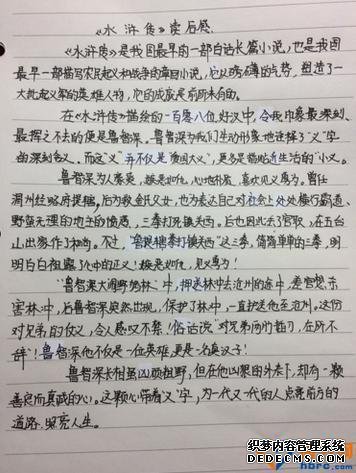 《水浒传》读后感
《水浒传》是我国最早的一部白话长篇小说，也是我国
最早一部描写农民起义和战争的章回小说，它以磅礴的气势，塑造了一
大批起义军的英雄人物，它的成就是前所未有的。
在《水浒传》描绘的一百零八位好汉中，令我印象最深刻、
最挥之不去的便是鲁智深。鲁智深为我们生动形象地诠释了“义”字
的深刻含义，而这“义”并不仅是“爱国大义”，更多是偏贴近生活的“小义。
鲁智深为人豪爽，嫉恶如仇，心地朴素，喜欢见义勇为。曾任
渭州经略府提辖，后为救金氏父女，也为表达自己对社会上处处横行霸道、
野蛮无理的地主的愤慨，三拳打死镇关西。后也因此去了官职，在五台
山出家作了和尚。不过，“鲁提辖拳打镇关西”这三拳，简简单单的三拳，明
明白白袒露了心中的正义！嫉恶如仇，见义勇为！
“鲁智深大闹野猪林”中，押送林冲去沧州的途中，差官想杀
害林冲，后鲁智深突然出现，保护了林冲，一直护送他至沧州。这份
对兄弟的仗义，令人感叹不禁！俗话说“对兄弟两肋插刀，在所不
辞”！鲁智深他不仅是一位英雄，更是一名真汉子！
鲁智深长相虽凶恶粗野，但在他凶狠的外表下，却有一颗
善良而真诚的心。这颗心带着“义”字，为一代又一代的人点亮前方的
道路，照亮人生。
织梦内容管理系统
DEDECMS.COM